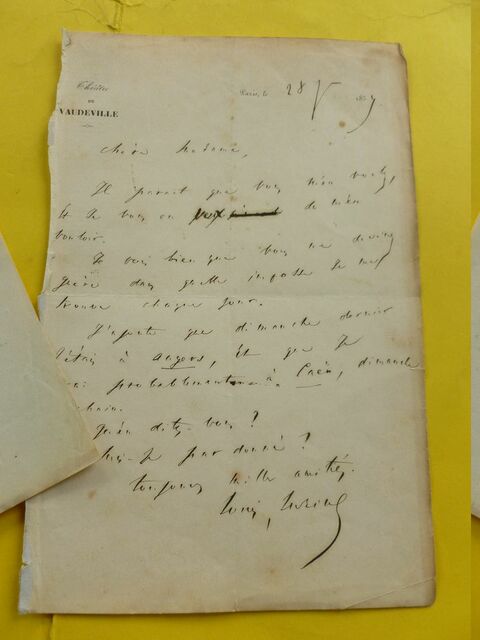 Théâtre
DE
VAUDEVILLE
Paris, le 28 185
Chère Madame,
Il parait que vous m'en voulez,
et je vous en de m'en
vouloir.
Je vois bien que vous ne devinez
guère dans quelle je me
trouve chaque jour.
J'ajoute que dimanche dernier
j'étais à Angers, et que je
probablement à Caën, dimanche
chain.
Qu'en dites-vous ?
suis-je pardonné ?
toujours mille amitiés.
Louis Lurine